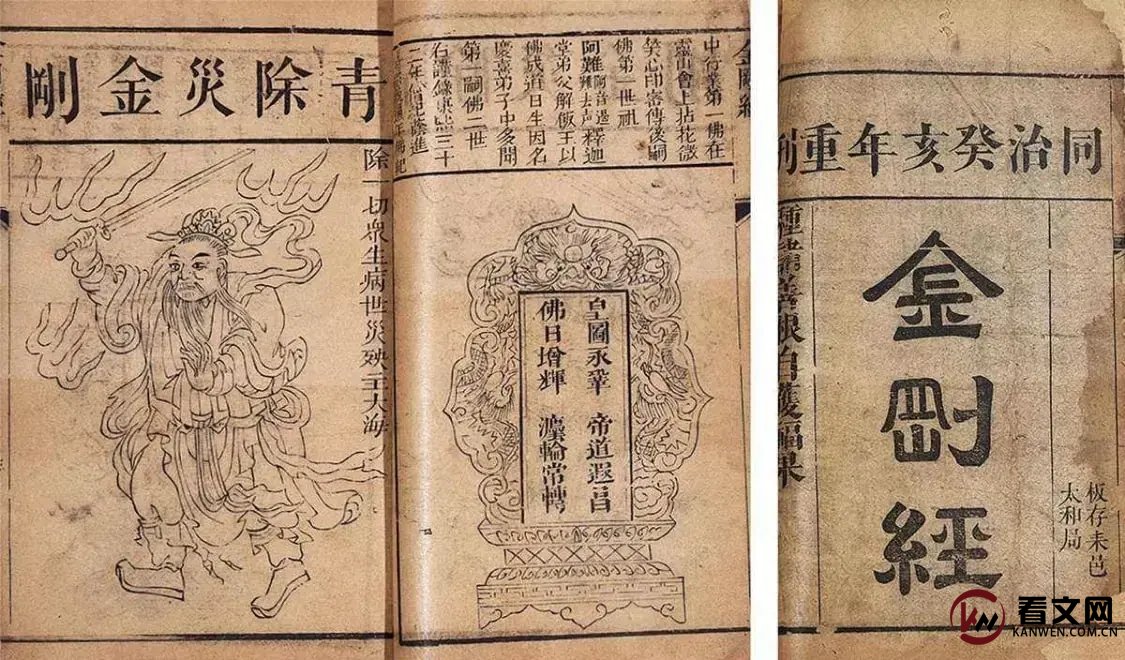 中行業第一佛在
靈山會上拈花微
笑心印密傳後嗣
佛第一世祖
阿難
釋迦
堂弟父斛飯王以
佛成道日生因名
慶喜弟子中多聞
第一嗣佛二世
皇圖永鞏 帝道遐昌
佛日增輝 灋輪常轉
青除災金剛
除一切衆生病世災殃主大海
同治癸亥年重刊
板存耒邑
太和局
金剛經
種諸善根自獲福果
看文网
KANWEN.COM.CN